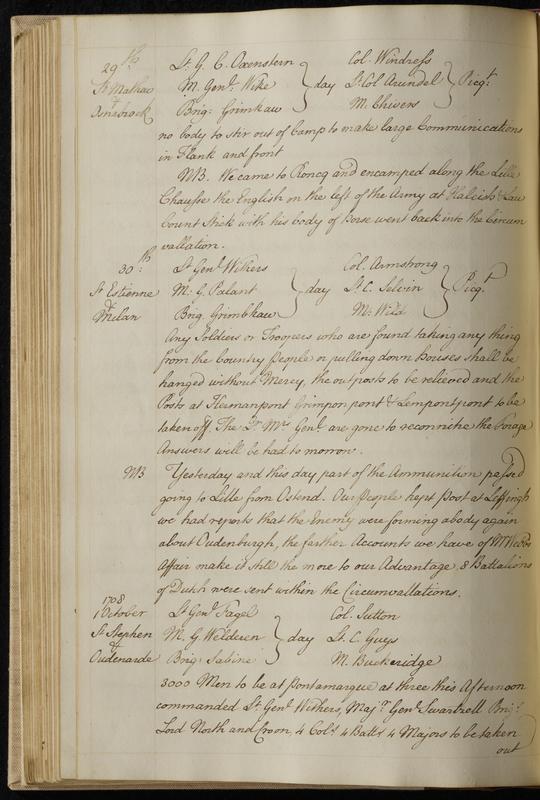 29th Lt. G. C. Oxenstern Col. Windress
St Mathao M. Genl. Wike day Lt. Col Arundel Picqt
& Osnabrock Brig: Grimkaw M. Chivers
no body to stir out of Camp to make large Communications
in Flank and front
NB. We came to Roncq and encamped along the Lille
Chausse the English on the left of the Army at
Count Stick with his body of Horse went back into the Circum
vallation.
30th: Lt Genl Withers Col. Armstrong
St Estienne M: G. Palant day Lt. C. Selvin Picqt
& Milan Brig. Grimbkaw M: Wild
Any Soldiers or Troopers who are found taking any thing
from the Country People or pulling down Houses shall be
hanged without Mercy, the outposts to be relieved and the
Posts at Hermanpont Grimpon pont & Lempontpont to be
taken off. The Qr. Mrs Genl are gone to reconnitre the Forage
Answers will be had to morrow.
NB Yesterday and this day part of the Ammunition passed
going to Lille from Ostend. Our People kept post at Leffingh
we had reports that the Enemy were forming a body again
about Oudenburgh, the farther Accounts we have of
Affair make it still the more to our Advantage. 8 Battalions
of Dutch were sent within the Circumvallations.
1708
1 October Lt Genl Fagel Col. Sutton
St Stephen M. G. Welderen day Lt. C. Guys
& Oudenarde Brig: Sabine M. Buckeridge
3000 Men to be at Pontamarque at three this Afternoon
commanded Lt. Genl Withers, Majr Genl Swartzell Brigr
Lord North and Croon, 4 Cols 4 Batts 4 Majors to be taken
out